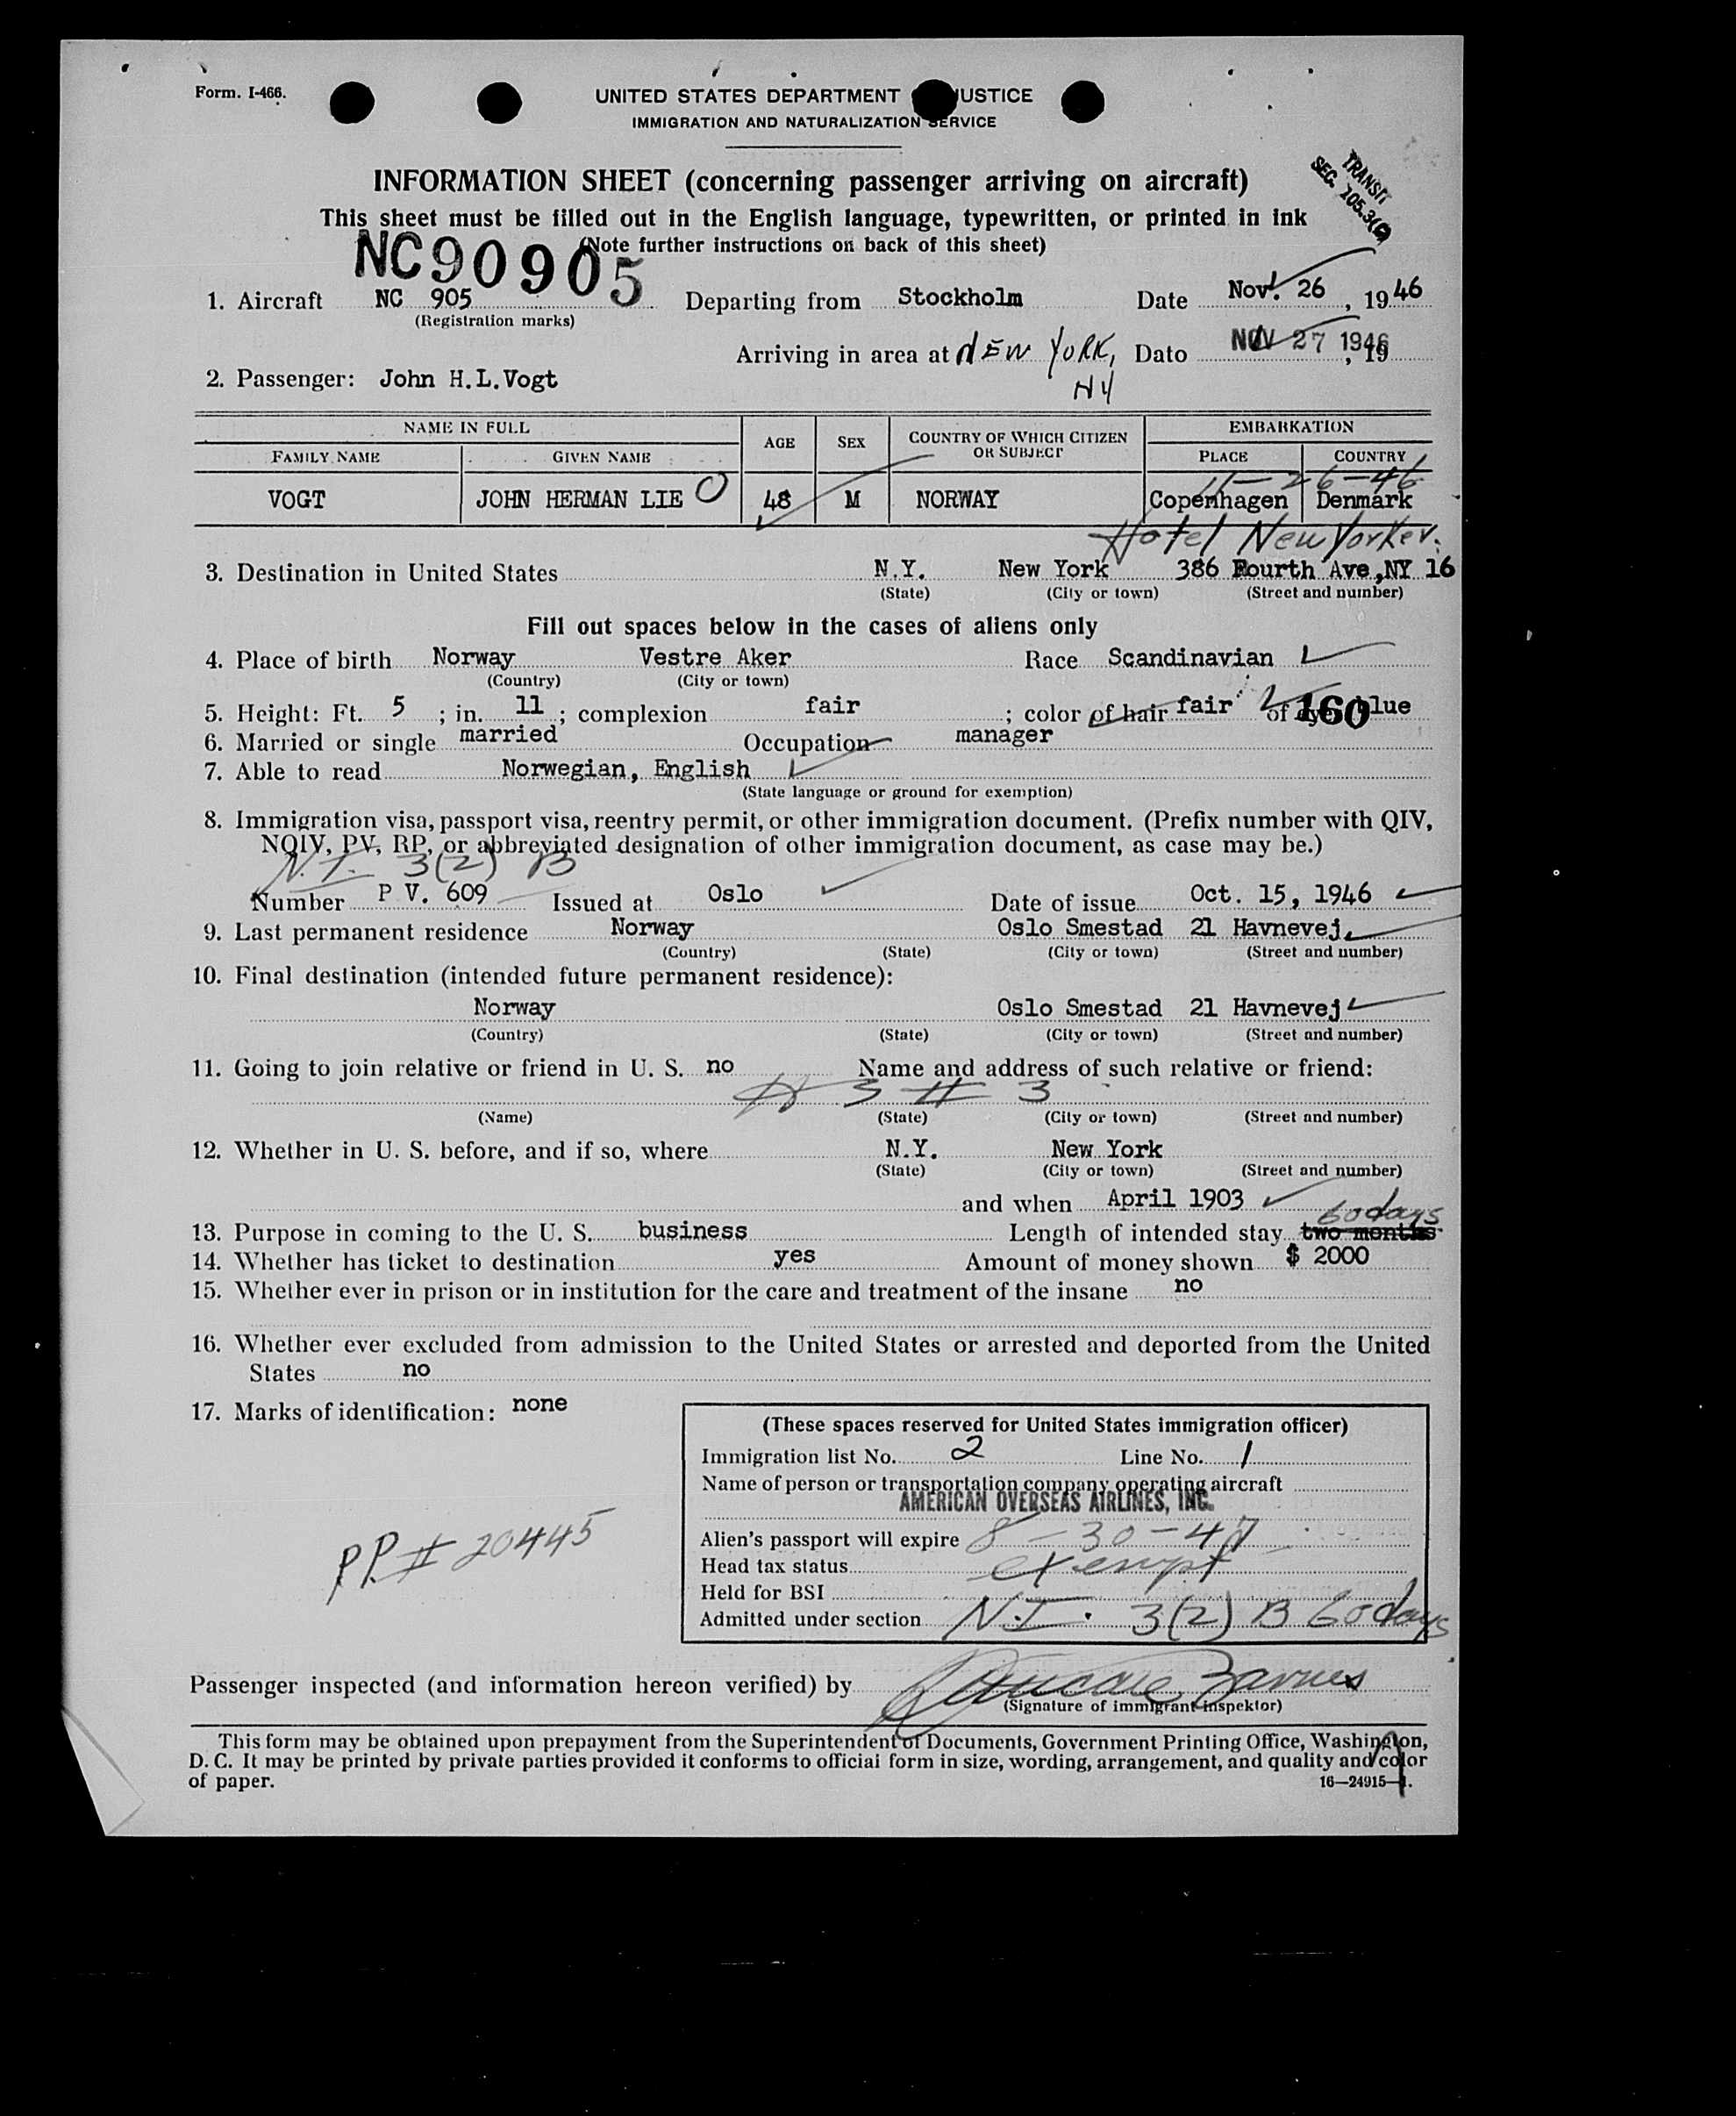 Form. I-466.
UNITED STATES DEPARTMENT JUSTICE
IMMIGRATION AND NATURALIZATION SERVICE
TRANSIT
SEC. 205.3(G)
INFORMATION SHEET (concerning passenger arriving on aircraft)
This sheet must be filled out in the English language, typewritten, or printed in ink
(Note further instructions on back of this sheet)
NC90905
1. Aircraft NC 905 Departing from Stockholm Date Nov. 26, 1946
(Registration marks)
Arriving in area at NEW YORK, NY Date NOV 27 1946, 19
2. Passenger: John H.L.Vogt
NAME IN FULL AGE SEX COUNTRY OF WHICH CITIZEN OR SUBJECT EMBARKATION
FAMILY NAME GIVEN NAME PLACE COUNTRY
11-26-46
VOGT JOHN HERMAN LIE O 48 M NORWAY Copenhagen Denmark
Hotel New Yorker.
3. Destination in United States N.Y. New York 386 Fourth Ave,NY 16
(State) (City or town) (Street and number)
Fill out spaces below in the cases of aliens only
4. Place of birth Norway Vestre Aker Race Scandinavian
(Country) (City or town)
5. Height: Ft. 5 ; in. 11 ; complexion fair ; color of hair fair of eyes blue
160
6. Married or single married Occupation manager
7. Able to read Norwegian, English
(State language or ground for exemption)
8. Immigration visa, passport visa, reentry permit, or other immigration document. (Prefix number with QIV,
NQIV, PV, RP, or abbreviated designation of other immigration document, as case may be.)
N.I. 3(2) B
Number P V. 609 Issued at Oslo Date of issue Oct. 15, 1946
9. Last permanent residence Norway Oslo Smestad 21 Havnevej
(Country) (State) (City or town) (Street and number)
10. Final destination (intended future permanent residence):
Norway Oslo Smestad 21 Havnevej
(Country) (State) (City or town) (Street and number)
11. Going to join relative or friend in U. S. no Name and address of such relative or friend:
3 # 3
(Name) (State) (City or town) (Street and number)
12. Whether in U. S. before, and if so, where N.Y. New York
(State) (City or town) (Street and number)
and when April 1903
60 days
13. Purpose in coming to the U. S. business Length of intended stay two months
14. Whether has ticket to destination yes Amount of money shown $ 2000
15. Whether ever in prison or in institution for the care and treatment of the insane no
16. Whether ever excluded from admission to the United States or arrested and deported from the United
States no
17. Marks of identification: none
(These spaces reserved for United States immigration officer)
Immigration list No. 2 Line No. 1
Name of person or transportation company operating aircraft
AMERICAN OVERSEAS AIRLINES, INC.
PP. # 20445
Alien's passport will expire 8-30-47
Head tax status exempt
Held for BSI
Admitted under section N.I. 3(2) B 60 days
Passenger inspected (and information hereon verified) by Barnes
(Signature of immigrant inspektor)
This form may be obtained upon prepayment from the Superintendent of Documents, Government Printing Office, Washington,
D. C. It may be printed by private parties provided it conforms to official form in size, wording, arrangement, and quality and color
of paper. 16—24915-1.